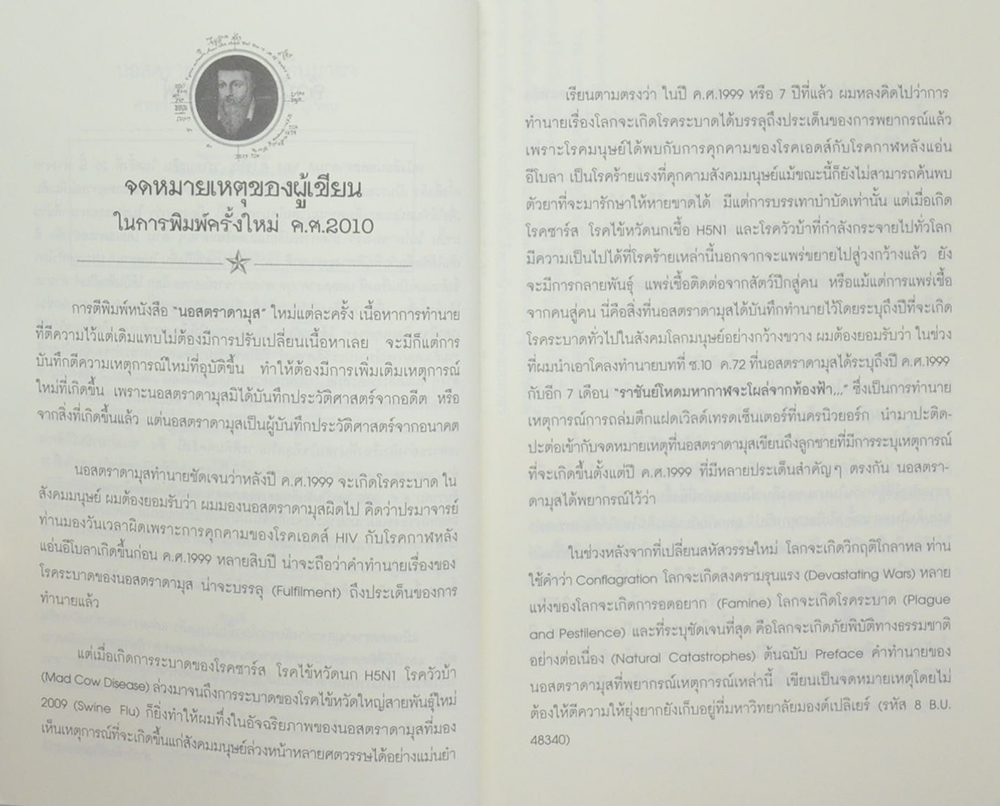 จดหมายเหตุของผู้เขียน
ในการพิมพ์ครั้งใหม่ ค.ศ.2010
การตีพิมพ์หนังสือ "นอสตราดามุส" ใหม่แต่ละครั้ง เนื้อหาการทำนาย
ที่ตีความไว้แต่เดิมแทบไม่ต้องมีการปรับเปลี่ยนเนื้อหาเลย จะมีก็แต่การ
บันทึกตีความเหตุการณ์ใหม่ที่อุบัติขึ้น ทำให้ต้องมีการเพิ่มเติมเหตุการณ์
ใหม่ที่เกิดขึ้น เพราะนอสตราดามุสมิได้บันทึกประวัติศาสตร์จากอดีต หรือ
จากสิ่งที่เกิดขึ้นแล้ว แต่นอสตราดามุสเป็นผู้บันทึกประวัติศาสตร์จากอนาคต
นอสตราดามุสทำนายชัดเจนว่าหลังปี ค.ศ.1999 จะเกิดโรคระบาด ใน
สังคมมนุษย์ ผมต้องยอมรับว่า ผมมองนอสตราดามุสผิดไป คิดว่าปรมาจารย์
ท่านมองวันเวลาผิดเพราะการคุกคามของโรคเอดส์ HIV กับโรคกาฬหลัง
แอ่นอีโบลาเกิดขึ้นก่อน ค.ศ.1999 หลายสิบปี น่าจะถือว่าคำทำนายเรื่องของ
โรคระบาดของนอสตราดามุส น่าจะบรรลุ (Fulfilment) ถึงประเด็นของการ
ทำนายแล้ว
แต่เมื่อเกิดการระบาดของโรคซาร์ส โรคไข้หวัดนก H5N1 โรควัวบ้า
(Mad Cow Disease) ล่วงมาจนถึงการระบาดของโรคไข้หวัดใหญ่สายพันธุ์ใหม่
2009 (Swine Flu) ก็ยิ่งทำให้ผมทึ่งในอัจฉริยภาพของนอสตราดามุสที่มอง
เห็นเหตุการณ์ที่จะเกิดขึ้นแก่สังคมมนุษย์ล่วงหน้าหลายศตวรรษได้อย่างแม่นยำ
เรียนตามตรงว่า ในปี ค.ศ.1999 หรือ 7 ปีที่แล้ว ผมหลงคิดไปว่าการ
ทำนายเรื่องโลกจะเกิดโรคระบาดได้บรรลุถึงประเด็นของการพยากรณ์แล้ว
เพราะโรคมนุษย์ได้พบกับการคุกคามของโรคเอดส์กับโรคกาฬหลังแอ่น
อีโบลา เป็นโรคร้ายแรงที่คุกคามสังคมมนุษย์แม้ขณะนี้ก็ยังไม่สามารถค้นพบ
ตัวยาที่จะมารักษาให้หายขาดได้ มีแต่การบรรเทาบำบัดเท่านั้น แต่เมื่อเกิด
โรคซาร์ส โรคไข้หวัดนกเชื้อ H5N1 และโรควัวบ้าที่กำลังกระจายไปทั่วโลก
มีความเป็นไปได้ที่โรคร้ายเหล่านี้นอกจากจะแพร่ขยายไปสู่วงกว้างแล้ว ยัง
จะมีการกลายพันธุ์ แพร่เชื้อติดต่อจากสัตว์ปีกสู่คน หรือแม้แต่การแพร่เชื้อ
จากคนสู่คน นี่คือสิ่งที่นอสตราดามุสได้บันทึกทำนายไว้โดยระบุถึงปีที่จะเกิด
โรคระบาดทั่วไปในสังคมโลกมนุษย์อย่างกว้างขวาง ผมต้องยอมรับว่า ในช่วง
ที่ผมนำเอาโคลงทำนายบทที่ ซ.10 ค.72 ที่นอสตราดามุสได้ระบุถึงปี ค.ศ.1999
กับอีก 7 เดือน "ราชันย์โหดมหากาฬจะโผล่จากท้องฟ้า..." ซึ่งเป็นการทำนาย
เหตุการณ์การถล่มตึกแฝดเวิลด์เทรดเซ็นเตอร์ที่นครนิวยอร์ก นำมาปะติด-
ปะต่อเข้ากับจดหมายเหตุที่นอสตราดามุสเขียนถึงลูกชายที่มีการระบุเหตุการณ์
ที่จะเกิดขึ้นตั้งแต่ปี ค.ศ.1999 ที่มีหลายประเด็นสำคัญๆ ตรงกัน นอสตรา-
ดามุสได้พยากรณ์ไว้ว่า
ในช่วงหลังจากที่เปลี่ยนสหัสวรรษใหม่ โลกจะเกิดวิกฤติโกลาหล ท่าน
ใช้คำว่า Conflagration โลกจะเกิดสงครามรุนแรง (Devastating Wars) หลาย
แห่งของโลกจะเกิดการอดอยาก (Famine) โลกจะเกิดโรคระบาด (Plague
and Pestilence) และที่ระบุชัดเจนที่สุด คือโลกจะเกิดภัยพิบัติทางธรรมชาติ
อย่างต่อเนื่อง (Natural Catastrophes) ต้นฉบับ Preface คำทำนายของ
นอสตราดามุสที่พยากรณ์เหตุการณ์เหล่านี้ เขียนเป็นจดหมายเหตุโดยไม่
ต้องให้ตีความให้ยุ่งยากยังเก็บอยู่ที่มหาวิทยาลัยมองต์เปลิเยร์ (รหัส 8 B.U.
48340)